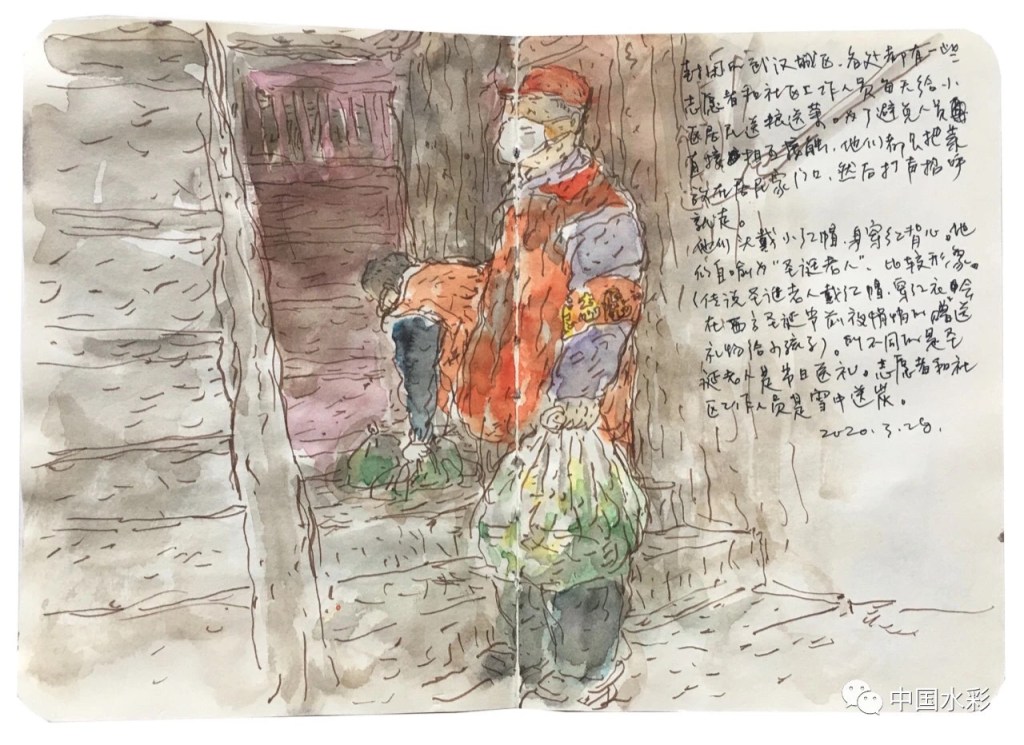 封闭的武汉城区,各处都有一些
志愿者和社区工作人员每天给小
区居民送粮送菜。为了避免人员
直接相互接触,他们都只把菜
放在居民家门口,然后打声招呼
就走。
他们头戴小红帽,身穿红背心。他
们自喻为“圣诞老人”,比较形象。
(传说圣诞老人戴红帽,穿红衣,会
在西方圣诞节前夜悄悄地赠送
礼物给小孩子)。所不同的是圣
诞老人是节日送礼。志愿者和社
区工作人员是雪中送炭。
2020.3.28.
志愿
中国水彩